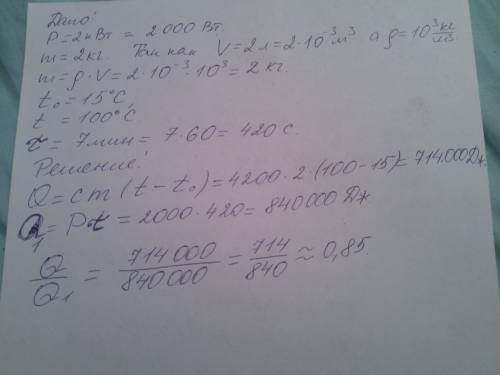 Дано:
P = 2 кВт = 2 000 Вт.
m = 2 кг. Так как V = 2 л = 2·10⁻³ м³ а ρ = 10³ кг/м³
m = ρ·V = 2·10⁻³·10³ = 2 кг.
t₀ = 15°C,
t = 100°C
τ = 7 мин = 7·60 = 420 с.
Решение:
Q = cm (t − t₀) = 4200·2·(100−15) = 714.000 Дж.
Q₁ = Pt = 2000·420 = 840 000 Дж
Q/Q₁ = 714 000/840 000 = 714/840 ≈ 0,85.